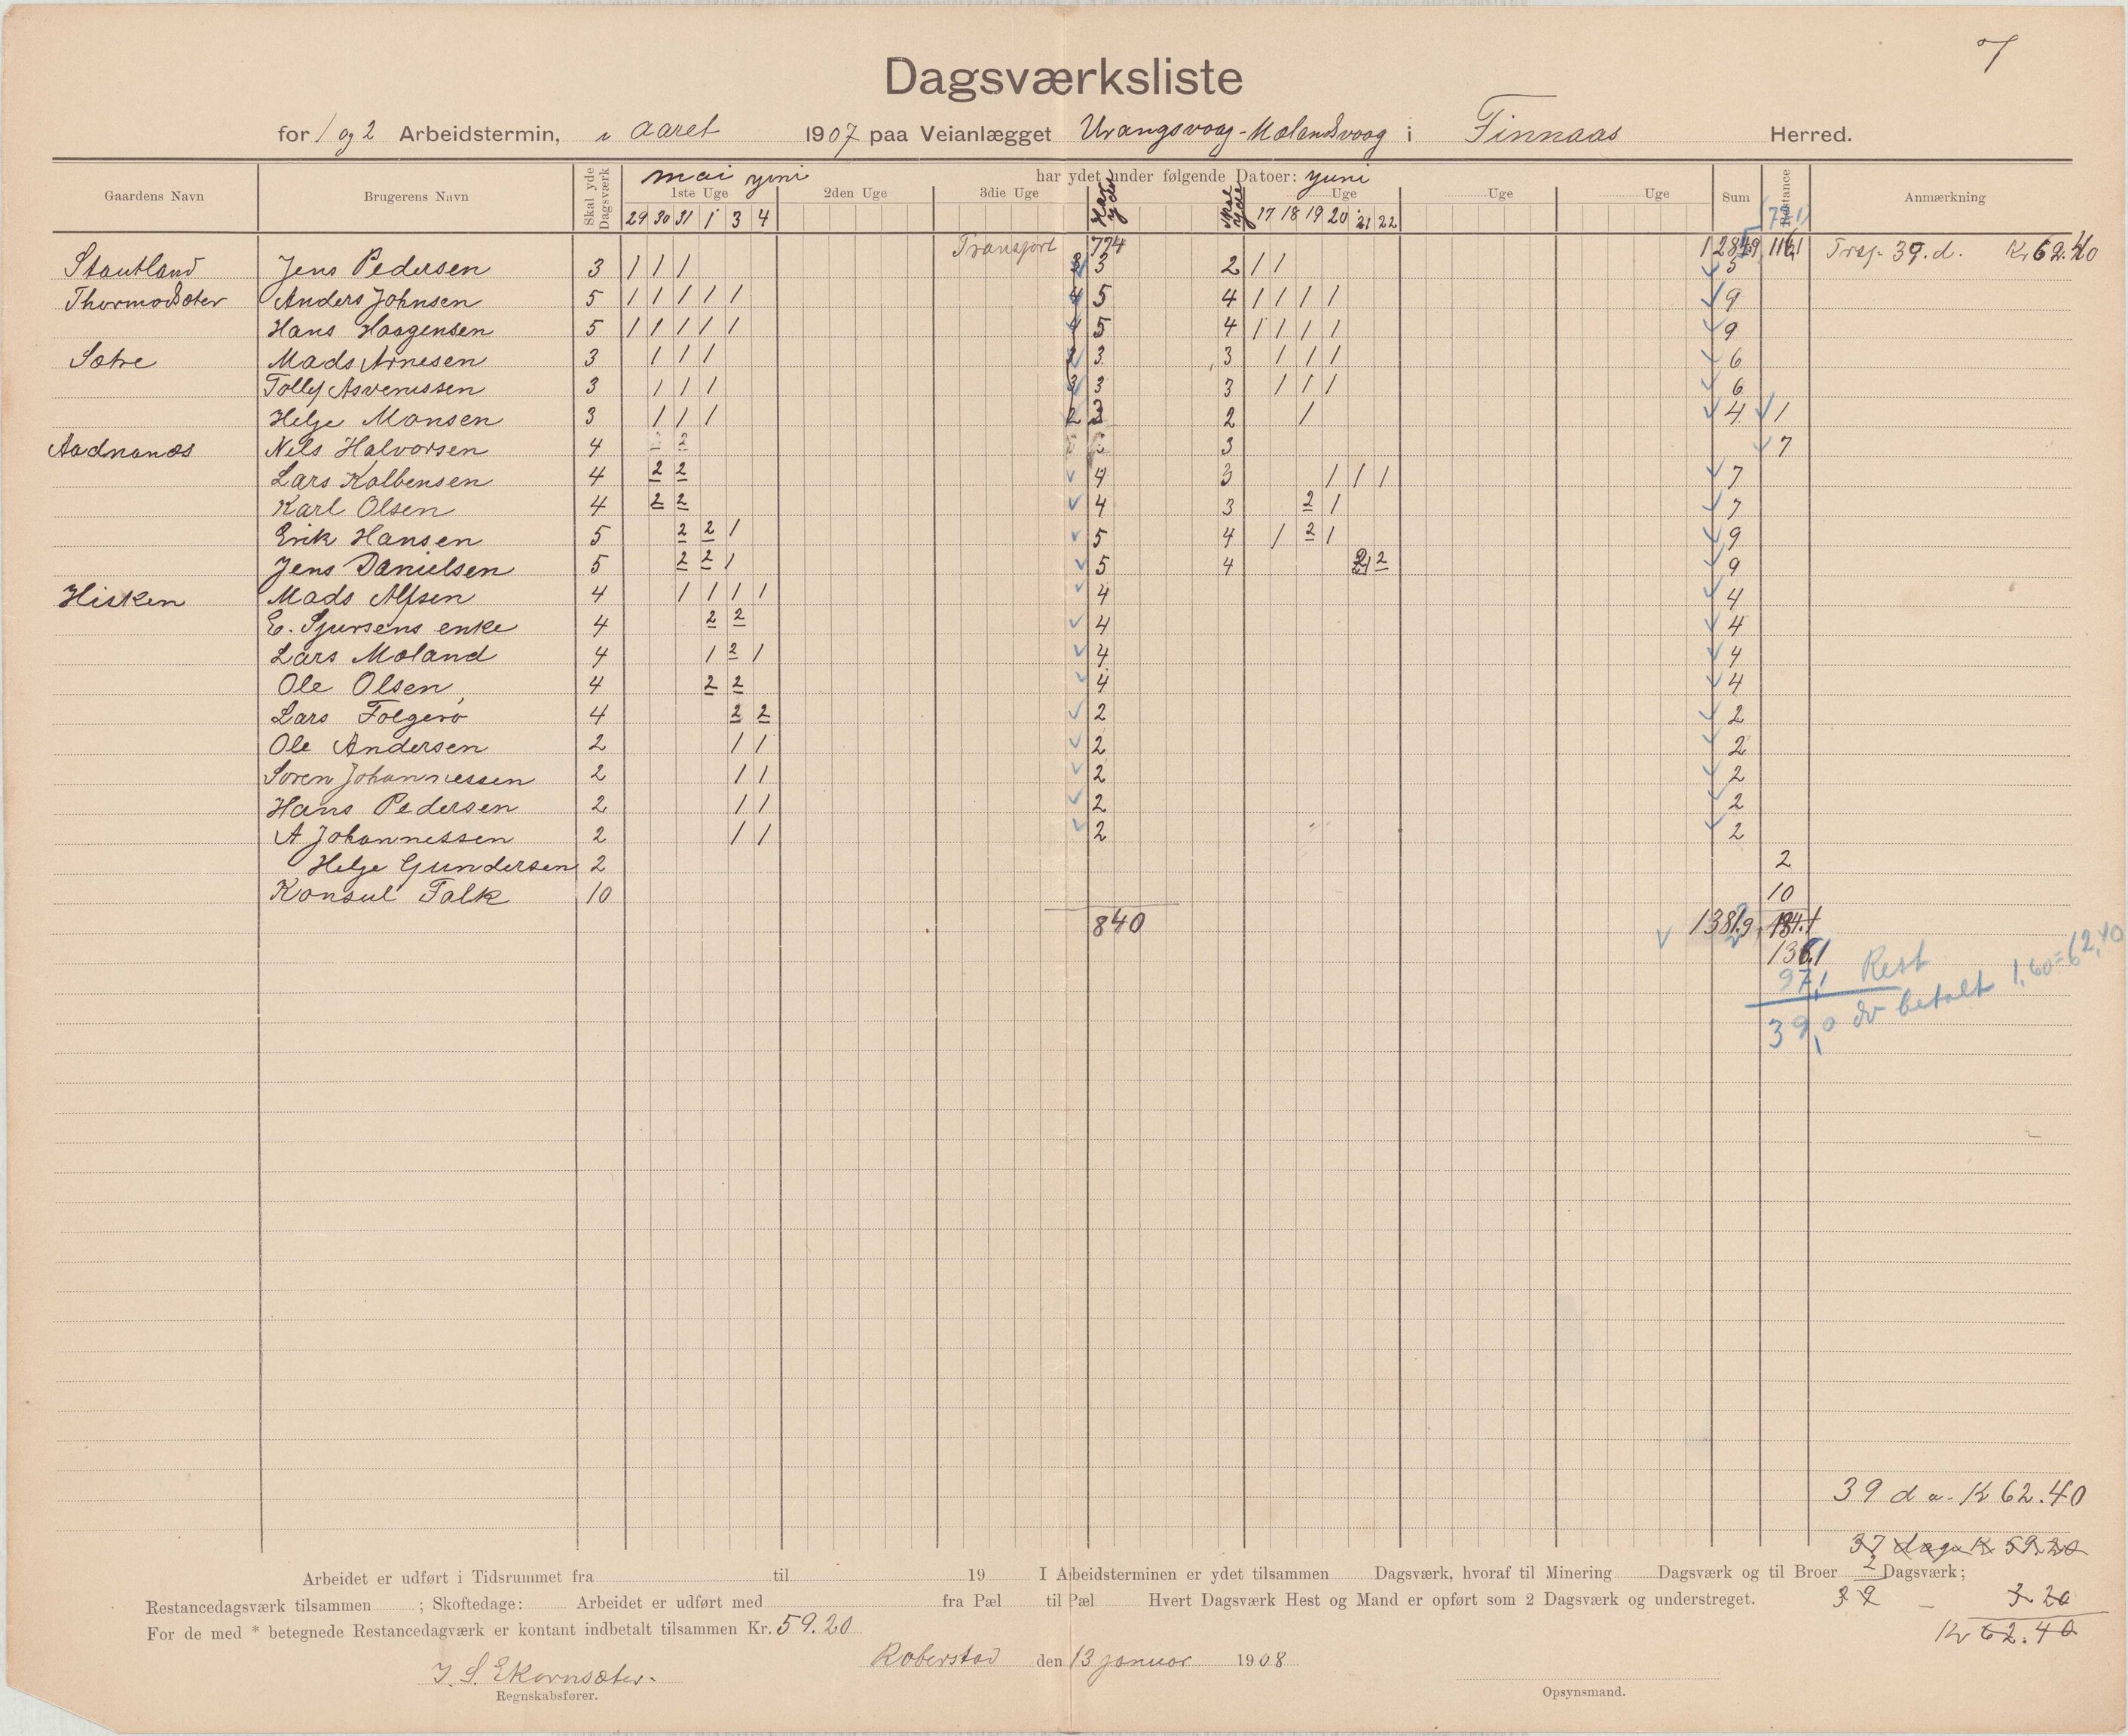 7
Dagsværksliste
for 1 og 2 Arbeidstermin, i aaret 1907 paa Veianlægget Urangsvaag-Mælandsvaag i Finnaas Herred.
Gaardens Navn Brugerens Navn Skal yde Dagsværk mai juni har ydet under følgende Datoer: juni Sum Restance Anmærkning
1ste Uge 2den Uge 3die Uge Har ydet Skal yde Uge Uge Uge
29 30 31 1 3 4 17 18 19 20 21 22
Transport 774 116,1 Trsp. 39. d. Kr 62.40
Stautland Jens Pedersen 3 / / / 3 3 2 / / 5
Thormodsæter Anders Johnsen 5 / / / / / 4 5 4 / / / / 9
Hans Haagensen 5 / / / / / 4 5 4 / / / / 9
Sætre Mads Arnesen 3 / / / 3 3 / / / 6
Tollef Asvenssen 3 / / / 3 3 3 / / / 6
Helge Monsen 3 / / / 2 3 2 / 4 1
Aadnanæs Nils Halvorsen 4 2 2 3 7
Lars Kolbensen 4 2 2 4 3 / / / 7
Karl Olsen 4 2 2 4 3 2 / 7
Erik Hansen 5 2 2 / 5 4 / 2 / 9
Jens Danielsen 5 2 2 / 5 4 2 2 9
Hisken Mads Alfsen 4 / / / / 4 4
E. Sjursens enke 4 2 2 4 4
Lars Mæland 4 / 2 / 4 4
Ole Olsen 4 2 2 4 4
Lars Folgerø 4 2 2 2 2
Ole Andersen 2 / / 2 2
Søren Johannessen 2 / / 2 2
Hans Pedersen 2 / / 2 2
A Johannessen 2 / / 2 2
Helge Gundersen 2 2
Konsul Falk 10 10
840 1381,9
136,1
97,1 Rest
39,0 dv betalt 1,60=62,40
39 d a. Kr 62.40
37 dage Kr 59.20
Arbeidet er udført i Tidsrummet fra til 19 I Arbeidsterminen er ydet tilsammen Dagsværk, hvoraf til Minering Dagsværk og til Broer Dagsværk;
2
Restancedagsværk tilsammen ; Skoftedage: Arbeidet er udført med fra Pæl til Pæl Hvert Dagsværk Hest og Mand er opført som 2 Dagsværk og understreget.
39 - 3.20
For de med * betegnede Restancedagværk er kontant indbetalt tilsammen Kr. 59.20
Kr 62.40
Roberstad den 13 januar 1908
J. S. Ekornsæter.
Regnskabsfører. Opsynsmand.